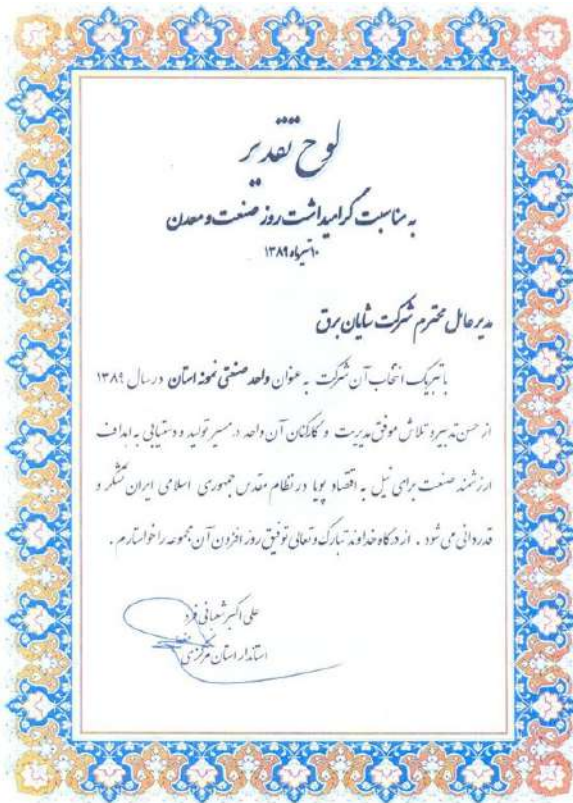 لوح تقدیر
به مناسبت گرامیداشت روز صنعت و معدن
۱۰ تیرماه ۱۳۸۹
مدیر عامل محترم شرکت شایان برق
با تبریک انتخاب آن شرکت به عنوان واحد صنعتی نمونه استان در سال ۱۳۸۹
از حسن تدبیر و تلاش موفق مدیریت و کارکنان آن واحد در مسیر تولید و دستیابی به اهداف
ارزشمند صنعت برای نیل به اقتصاد پویا در نظام مقدس جمهوری اسلامی ایران تشکر و
قدردانی می شود . از درگاه خداوند تبارک و تعالی توفیق روز افزون آن مجموعه را خواستارم .
علی اکبر شعبانی فرد
استاندار استان مرکزی